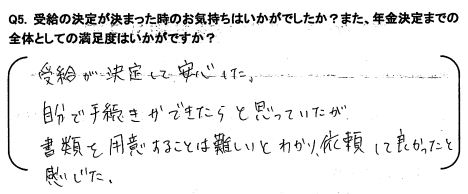 Q5. 受給の決定が決まった時のお気持ちはいかがでしたか?また、年金決定までの
全体としての満足度はいかがですか?
受給が決定して安心した。
自分で手続きができたらと思っていたが
書類を用意することは難しいとわかり、依頼して良かったと
感じた。